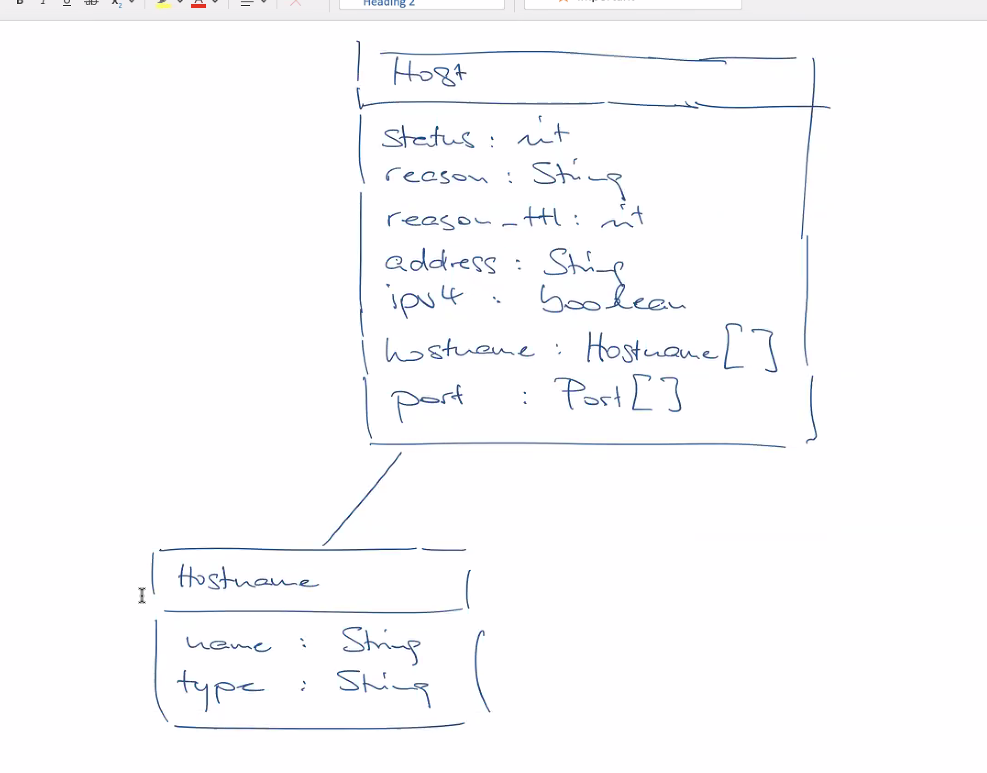 Heading 2
Host
status : int
reason : String
reason_ttl : int
address : String
ipv4 : boolean
hostname : Hostname[]
port : Port[]
Hostname
name : String
type : String